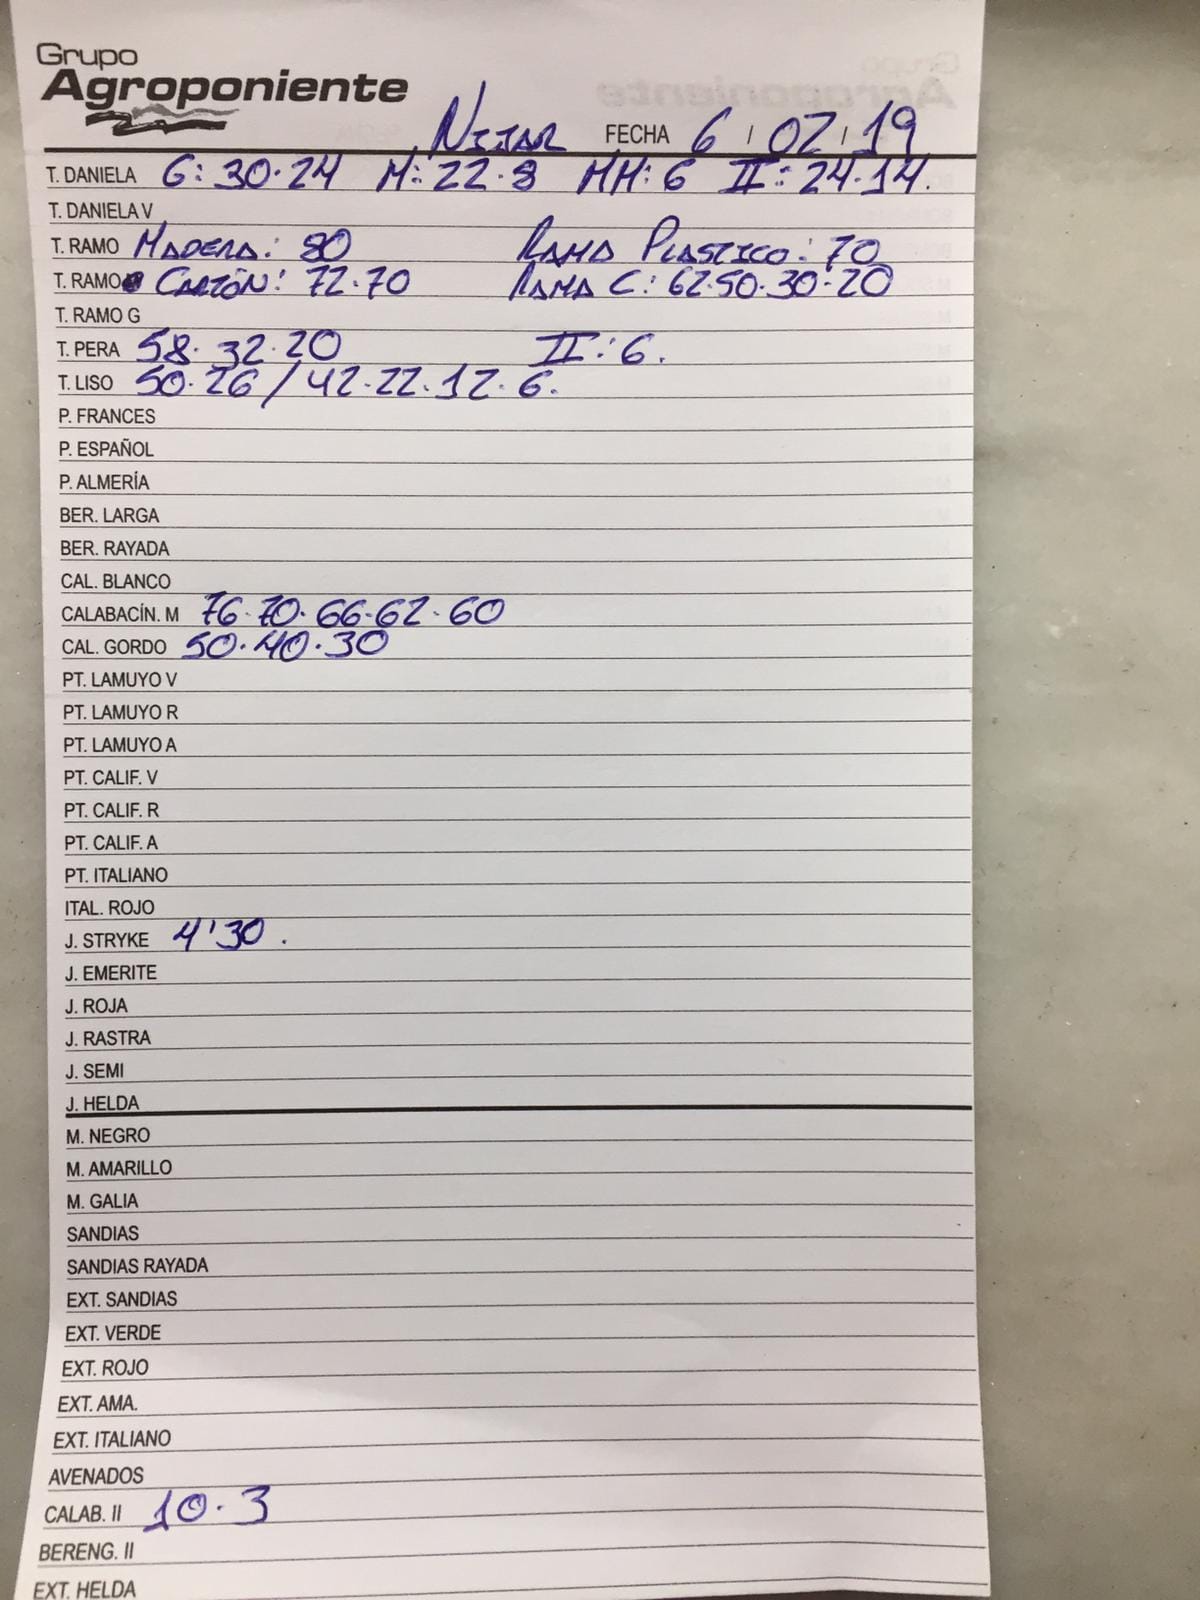 Grupo
Agroponiente
NIJAR FECHA 6 / 02 / 19
T. DANIELA G: 30·24 M: 22·8 MM: 6 II: 24·14.
T. DANIELA V
T. RAMO MADERA: 80 RAMA PLASTICO: 70
T. RAMO CARTÓN: 72·70 RAMA C: 62·50·30·20
T. RAMO G
T. PERA 58·32·20 II: 6.
T. LISO 50·26 / 42·22·12·6.
P. FRANCES
P. ESPAÑOL
P. ALMERÍA
BER. LARGA
BER. RAYADA
CAL. BLANCO
CALABACÍN. M 76·70·66·62·60
CAL. GORDO 50·40·30
PT. LAMUYO V
PT. LAMUYO R
PT. LAMUYO A
PT. CALIF. V
PT. CALIF. R
PT. CALIF. A
PT. ITALIANO
ITAL. ROJO
J. STRYKE 4'30.
J. EMERITE
J. ROJA
J. RASTRA
J. SEMI
J. HELDA
M. NEGRO
M. AMARILLO
M. GALIA
SANDIAS
SANDIAS RAYADA
EXT. SANDIAS
EXT. VERDE
EXT. ROJO
EXT. AMA.
EXT. ITALIANO
AVENADOS
CALAB. II 10·3
BERENG. II
EXT. HELDA